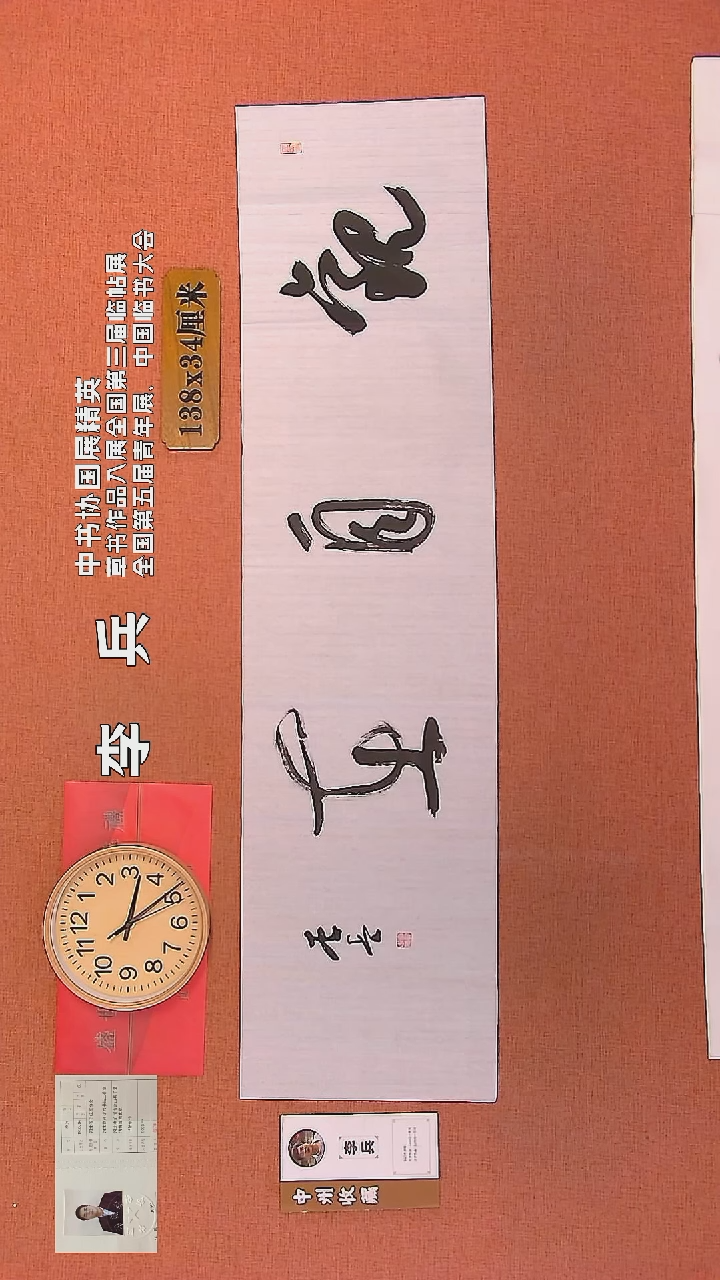 李 兵
中书协国展精英
草书作品入展全国第三届临帖展
全国第五届青年展、中国临书大会
138x34厘米
观自在
李兵
12
1
2
3
4
5
6
7
8
9
10
11
李兵
中州收藏